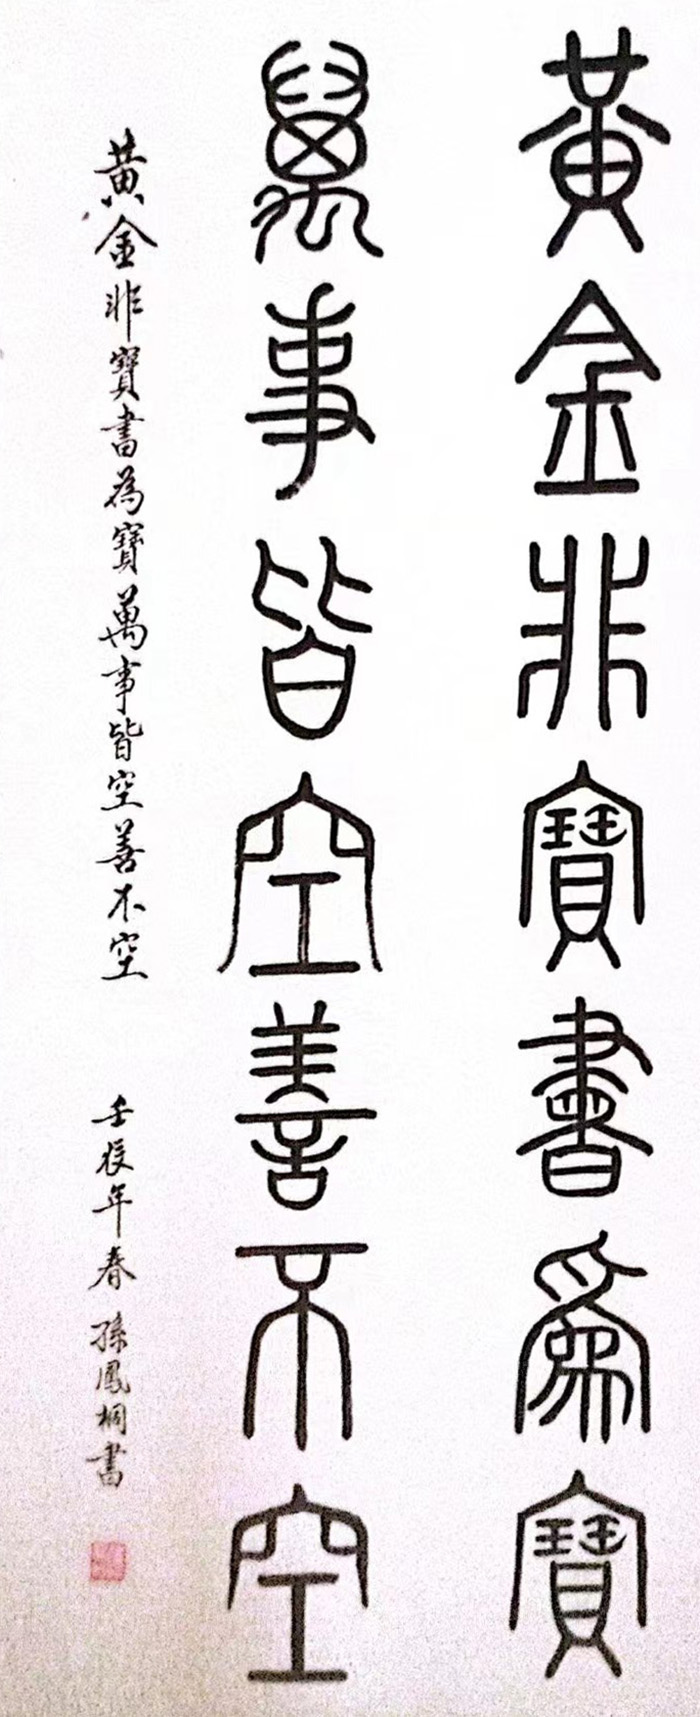 黃金非寶書爲寶
萬事皆空善不空
黃金非寶書為寶萬事皆空善不空
壬辰年春 孫鳳桐書